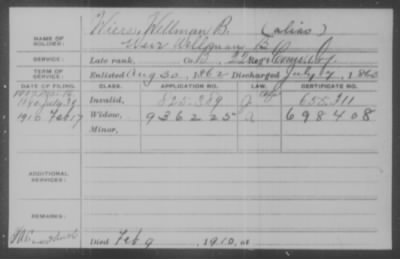 NAME OF SOLDIER: Wiers, Wellman B. (alias)
Weir Wellman B
SERVICE: Late rank, Co. B, 22 Reg't
TERM OF SERVICE: Enlisted Aug 30, 1862 Discharged July 7, 1865
DATE OF FILING. CLASS. APPLICATION NO. LAW. CERTIFICATE NO.
Invalid, 825.389 655.311
1910 Feb 17 Widow, 936225 a 698408
Minor,
ADDITIONAL SERVICES:
REMARKS:
Died Feb 9, 1910, at